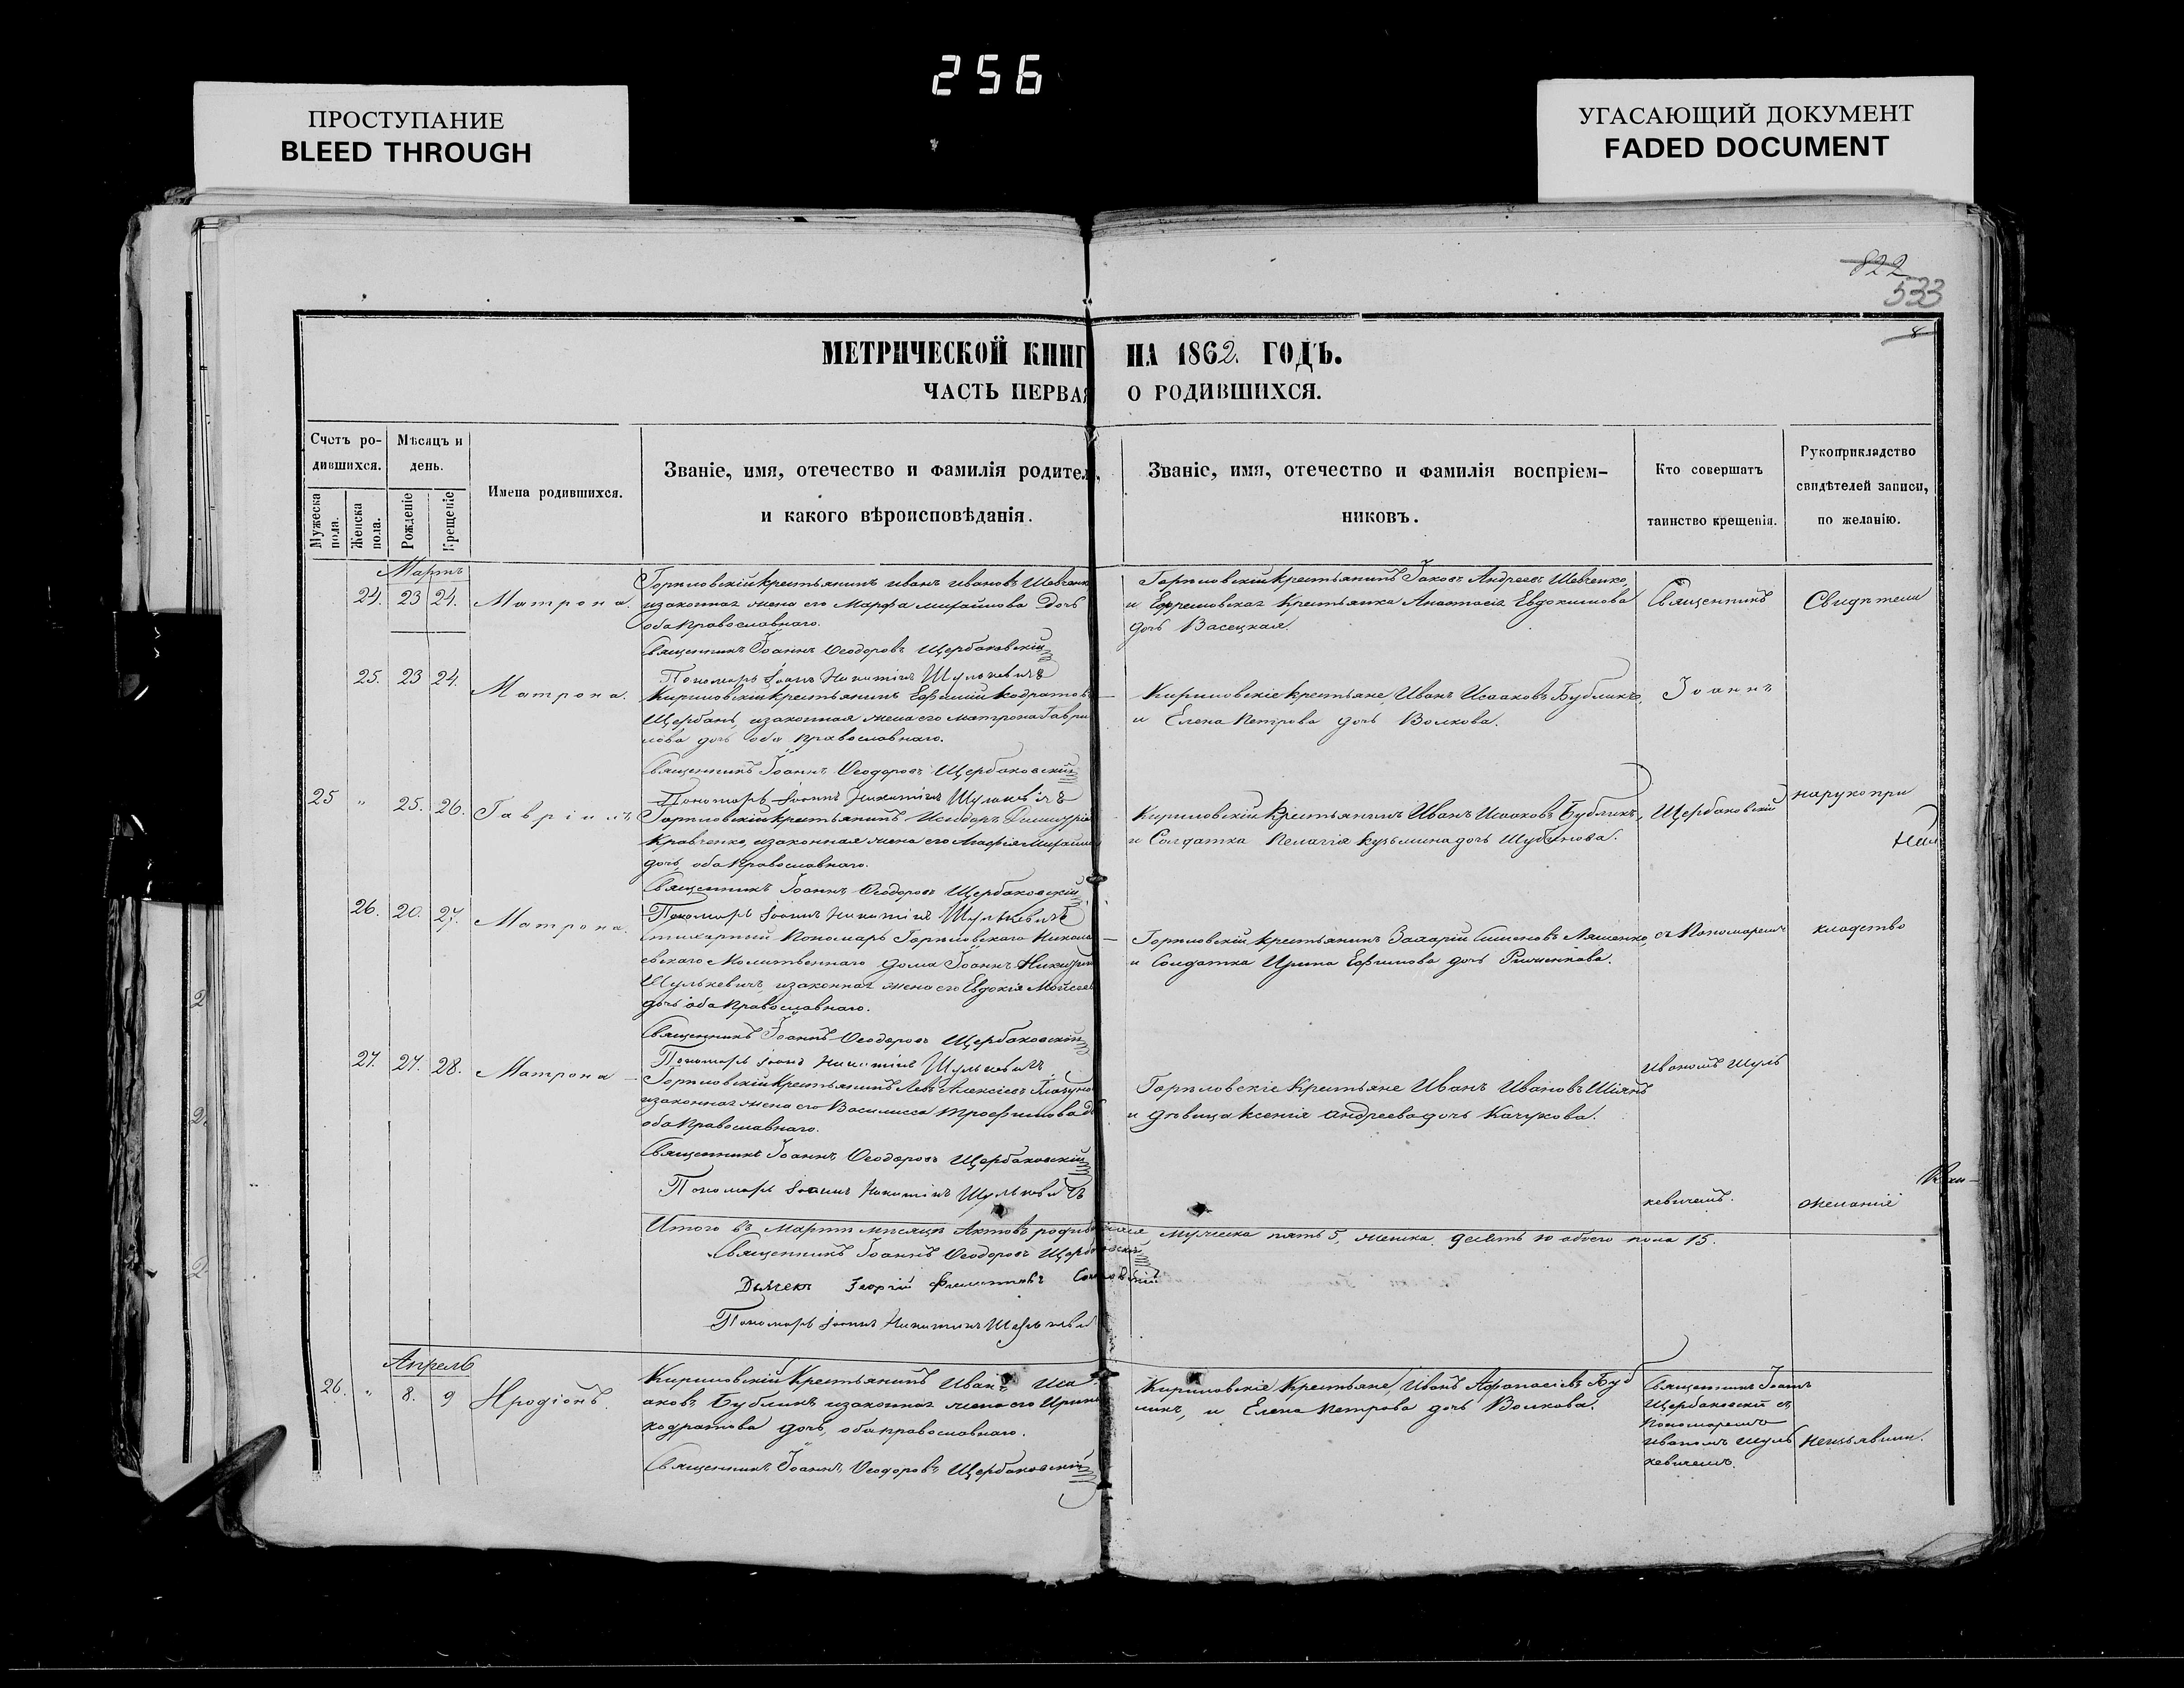 256
ПРОСТУПАНИЕ
BLEED THROUGH
УГАСАЮЩИЙ ДОКУМЕНТ
FADED DOCUMENT
822
533
8
МЕТРИЧЕСКОЙ КНИГ НА 1862. ГОДЪ.
ЧАСТЬ ПЕРВАЯ О РОДИВШИХСЯ.
Счетъ ро-
дившихся.
Мужеска
пола.
Женска
пола.
Мѣсяцъ и
день.
Рожденіе
Крещеніе
Имена родившихся.
Званіе, имя, отечество и фамилія родител
и какого вѣроисповѣданія.
Званіе, имя, отечество и фамилія воспріем-
никовъ.
Кто совершатъ
таинство крещенія.
Рукоприкладство
свидѣтелей записи,
по желанію.
Мартъ
24. 23 24. Матрона.
Горпловскій крестьянинъ Иванъ Ивановъ Шевченк
и законная жена его Марфа Михайлова Дочь
оба православнаго.
Горпловскій крестьянинъ Іаковъ Андреевъ Шевченко,
и Ефремовская крестьянка Анастасія Евдокимова
дочь Васецкая.
Священникъ
Свидѣтели
Священникъ Іоаннъ Ѳеодоровъ Щербаковскій
Пономарь Іоаннъ Никитинъ Шулькевичъ
25. 23 24. Матрона.
Кириловскій крестьянинъ Ефимій Кодратов
Щербань, и законная жена его Матрона Гаври
лова дочь оба православнаго.
Кириловскіе крестьяне, Иванъ Исааковъ Бубликъ,
и Елена Петрова дочь Волкова.
Іоаннъ
Священникъ Іоаннъ Ѳеодоровъ Щербаковскій
Пономарь Іоаннъ Никитинъ Шулькевичъ
25 " 25. 26. Гавріилъ
Горпловскій крестьянинъ Исидоръ
Кравченко, и законная жена его Агафія Михайлов
дочь, оба православнаго.
Кириловскій крестьянинъ Иванъ Исааковъ Бубликъ,
и Солдатка Пелагія Кузьмина дочь
Щербаковскій
на рукопри
Священникъ Іоаннъ Ѳеодоровъ Щербаковскій
Пономарь Іоаннъ Никитинъ Шулькевичъ
26. 20. 27. Матрона.
Стихарный Пономарь Горпловскаго Никола
евскаго Молитвеннаго дома Іоаннъ
Шулькевичъ, и законная жена его Евдокія Мойсеев
дочь оба православнаго.
Горпловскій крестьянинъ Захарій Сименовъ Ляшенко,
и Солдатка Ирина Ефимова дочь
съ Пономаремъ
кладство
Священникъ Іоаннъ Ѳеодоровъ Щербаковскій
Пономарь Іоаннъ Никитинъ Шулькевичъ
27. 27. 28. Матрона
Горпловскій крестьянинъ Левъ Алексѣевъ
и законная жена его Василисса Трофимова д
оба православнаго.
Горпловскіе крестьяне Иванъ Ивановъ Шіянъ
и дѣвица Ксенія Андреева дочь Качукова.
Иваномъ Шуль
Священникъ Іоаннъ Ѳеодоровъ Щербаковскій
Пономарь Іоаннъ Никитинъ Шулькевичъ
кевичемъ.
желаніе
Итого въ Мартѣ мѣсяцѣ Актовъ мужеска пять 5, женска десять 10 обоего пола 15.
Священникъ Іоаннъ Ѳеодоровъ Щербаковскій
Дьячекъ Георгій
Пономарь Іоаннъ Никитинъ Шулькевич
Апрель
26. " 8. 9 Иродіонъ.
Кириловскій Крестьянинъ Иванъ Иса
аковъ Бубликъ и законная жена его Ирина
Кодратова дочь, оба православнаго.
Кириловскіе Крестьяне, Иванъ Афонасіевъ Буб
ликъ, и Елена Петрова дочь Волкова.
Священникъ Іоаннъ
Щербаковскій съ
Пономаремъ
Иваномъ Шуль
кевичемъ.
неизъявили.
Священникъ Іоаннъ Ѳеодоровъ Щербаковскій